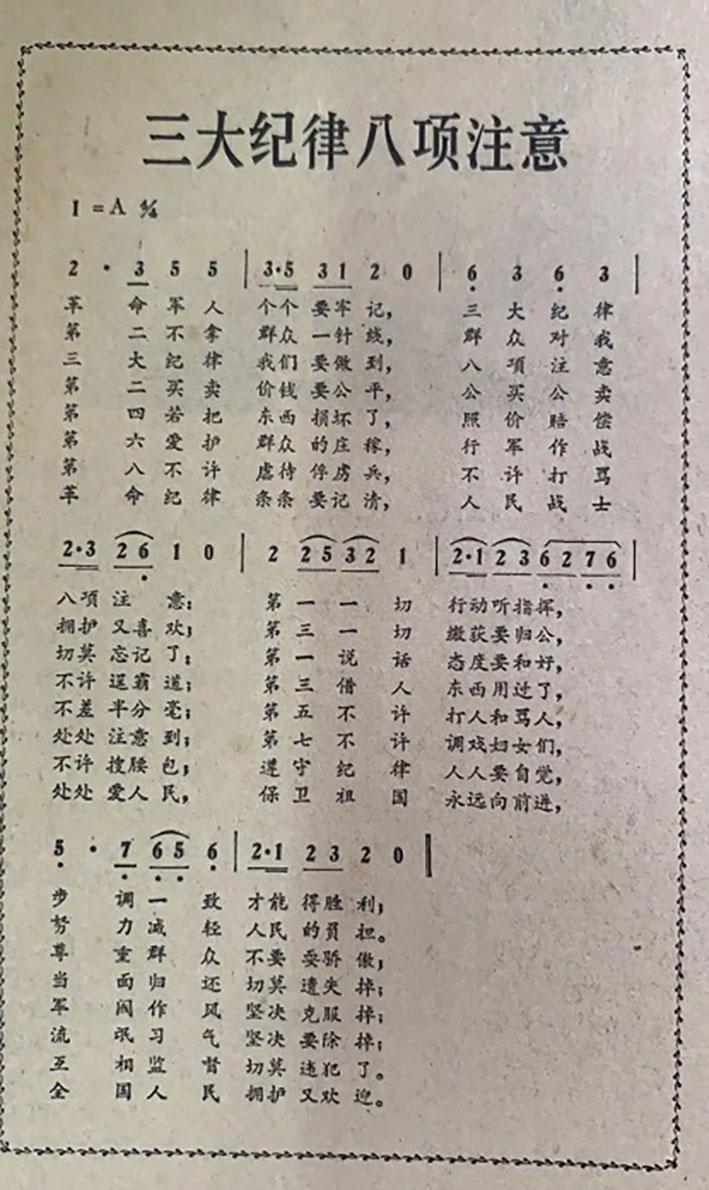 三大纪律八项注意
1=A 4/4
2 · 3 5 5 | 3·5 3 1 2 0 | 6 3 6 3 |
革 命 军 人 个个 要牢 记, 三 大 纪 律
第 二 不 拿 群众 一针 线, 群 众 对 我
三 大 纪 律 我们 要做 到, 八 项 注 意
第 二 买 卖 价钱 要公 平, 公 买 公 卖
第 四 若 把 东西 损坏 了, 照 价 赔 偿
第 六 爱 护 群众 的庄 稼, 行 军 作 战
第 八 不 许 虐待 俘虏 兵, 不 许 打 骂
革 命 纪 律 条条 要记 清, 人 民 战 士
2·3 2 6 1 0 | 2 2 5 3 2 1 | 2·1 2 3 6 2 7 6 |
八项 注 意; 第 一 一 切 行动听指挥,
拥护 又喜 欢; 第 三 一 切 缴获要归公,
切莫 忘记 了; 第 一 说 话 态度要和好,
不许 逞霸 道; 第 三 借 人 东西用过了,
不差 半分 毫; 第 五 不 许 打人和骂人,
处处 注意 到; 第 七 不 许 调戏妇女们,
不许 搜腰 包; 遵 守 纪 律 人人要自觉,
处处 爱人 民, 保 卫 祖 国 永远向前进,
5 · 7 6 5 6 | 2·1 2 3 2 0 ‖
步 调 一 致 才能 得胜 利;
努 力 减 轻 人民 的负 担。
尊 重 群 众 不要 耍骄 傲;
当 面 归 还 切莫 遗失 掉;
军 阀 作 风 坚决 克服 掉;
流 氓 习 气 坚决 要除 掉;
互 相 监 督 切莫 违犯 了。
全 国 人 民 拥护 又欢 迎。